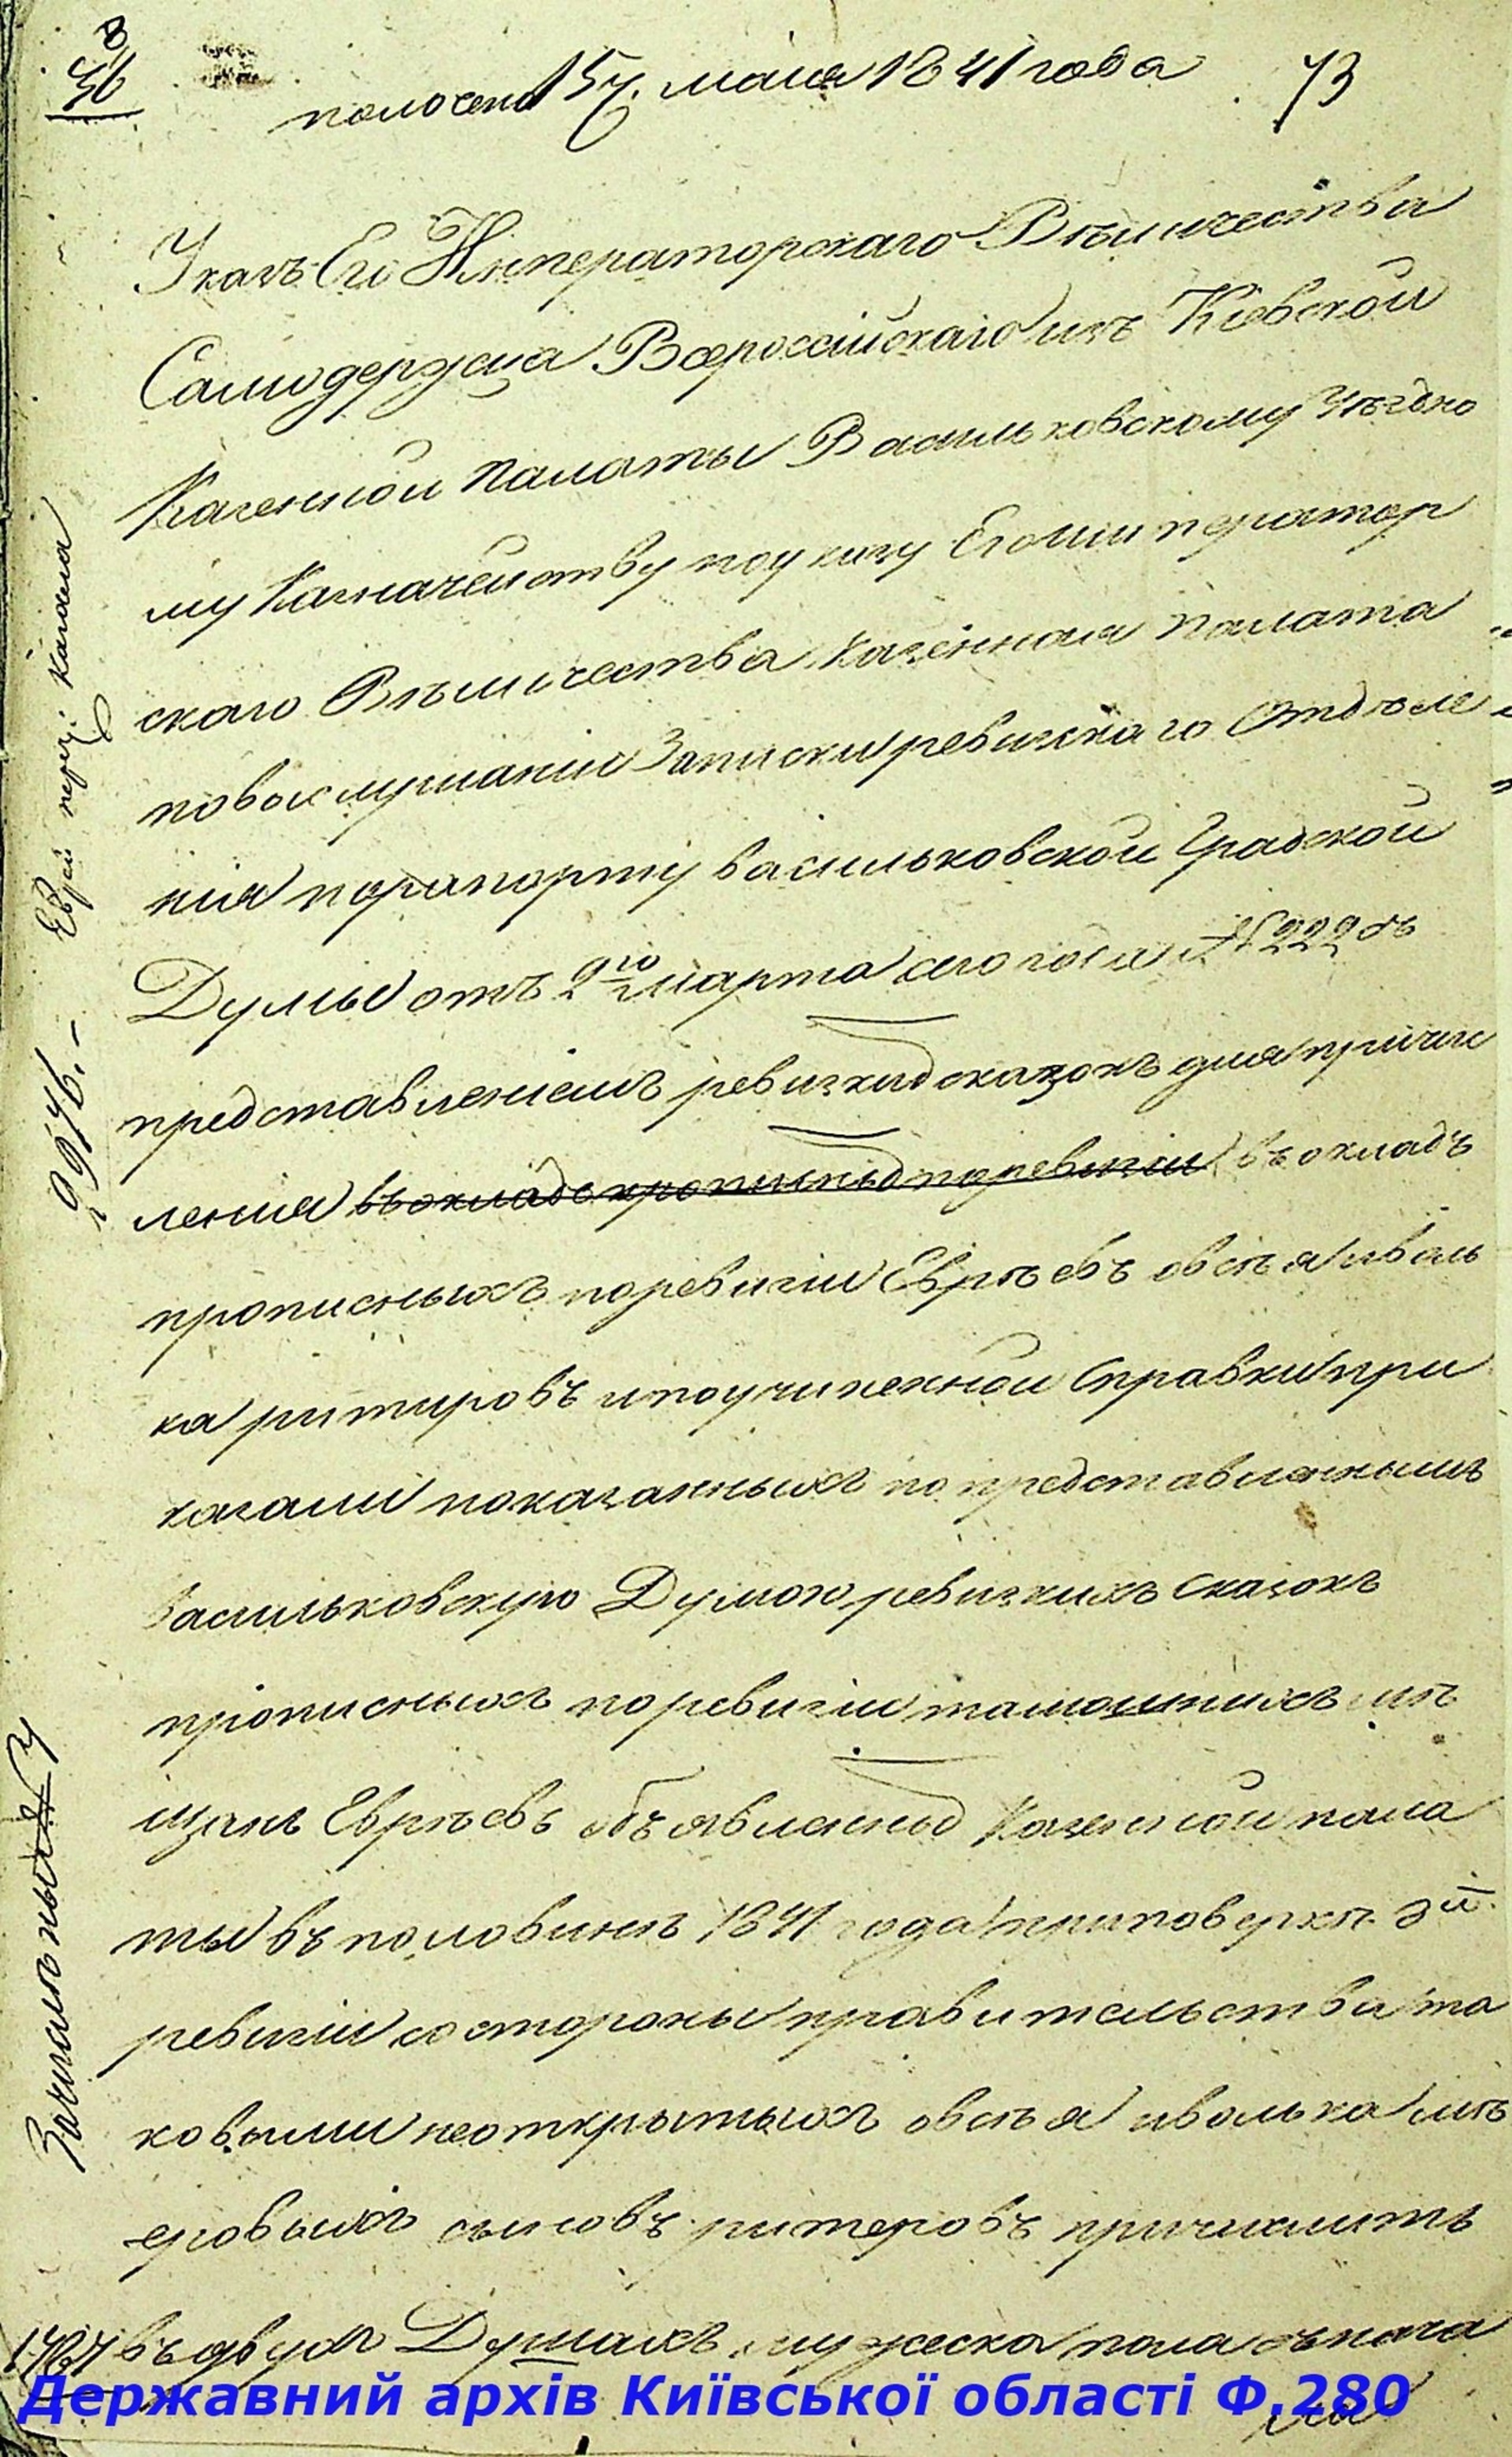 73
получено 15 ч. маия 1841 года
Указъ Его Императорскаго Величества
Самодержца Всероссійскаго изъ Кіевской
Казенной Палаты Васильковскому Уѣздно
му Казначейству по указу Его Император
скаго Величества Казенная Палата
по выслушаніи Записки ревизскаго Отдѣле
нія по рапорту Васильковской Градской
Думы отъ 2го марта сего года № 222 съ
представленіемъ ревизкихъ сказокъ для причис
ленія въ окладъ прописныхъ по ревизіи въ окладъ
прописныхъ по ревизіи Евреевъ овсѣя и воль
ка ритировъ и по учиненной Справки при
казали показанныхъ по представленнымъ
Васильковскую Думою ревизкихъ сказокъ
прописныхъ по ревизіи тамошнихъ мѣ
щанъ Евреевъ объявленныхъ Казенной пала
ты въ половинѣ 1841 года при поверкѣ 8й
ревизіи со стороны правительства та
ковыми неоткрытыхъ овсѣя и волька
еровыхъ сыновъ ритеровъ причислить
въ двухъ Душахъ мужеска пола съ нача
ла
Еврей Кагала
2974.
Державний архів Київської області Ф.280